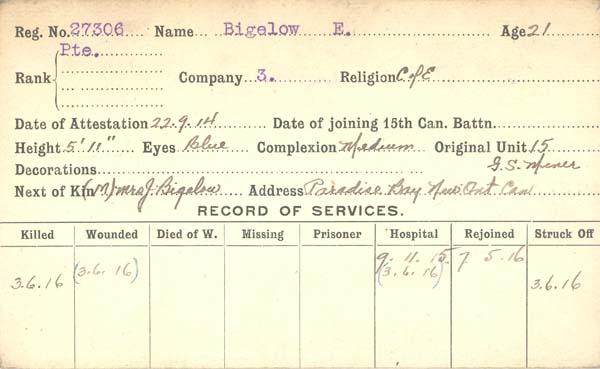 Reg. No. 27306 Name Bigelow E. Age 21
Rank Pte. Company 3. Religion C of E
Date of Attestation 22.9.14 Date of joining 15th Can. Battn.
Height 5' 11" Eyes Blue Complexion Medium Original Unit 15
Decorations G.S. Miner
Next of Kin (M) Mrs J. Bigelow Address Paradise Bay Ont Can
RECORD OF SERVICES.
Killed Wounded Died of W. Missing Prisoner Hospital Rejoined Struck Off
9. 11. 15. 7. 5. 16
3.6.16 (3.6.16) (3.6.16) 3.6.16